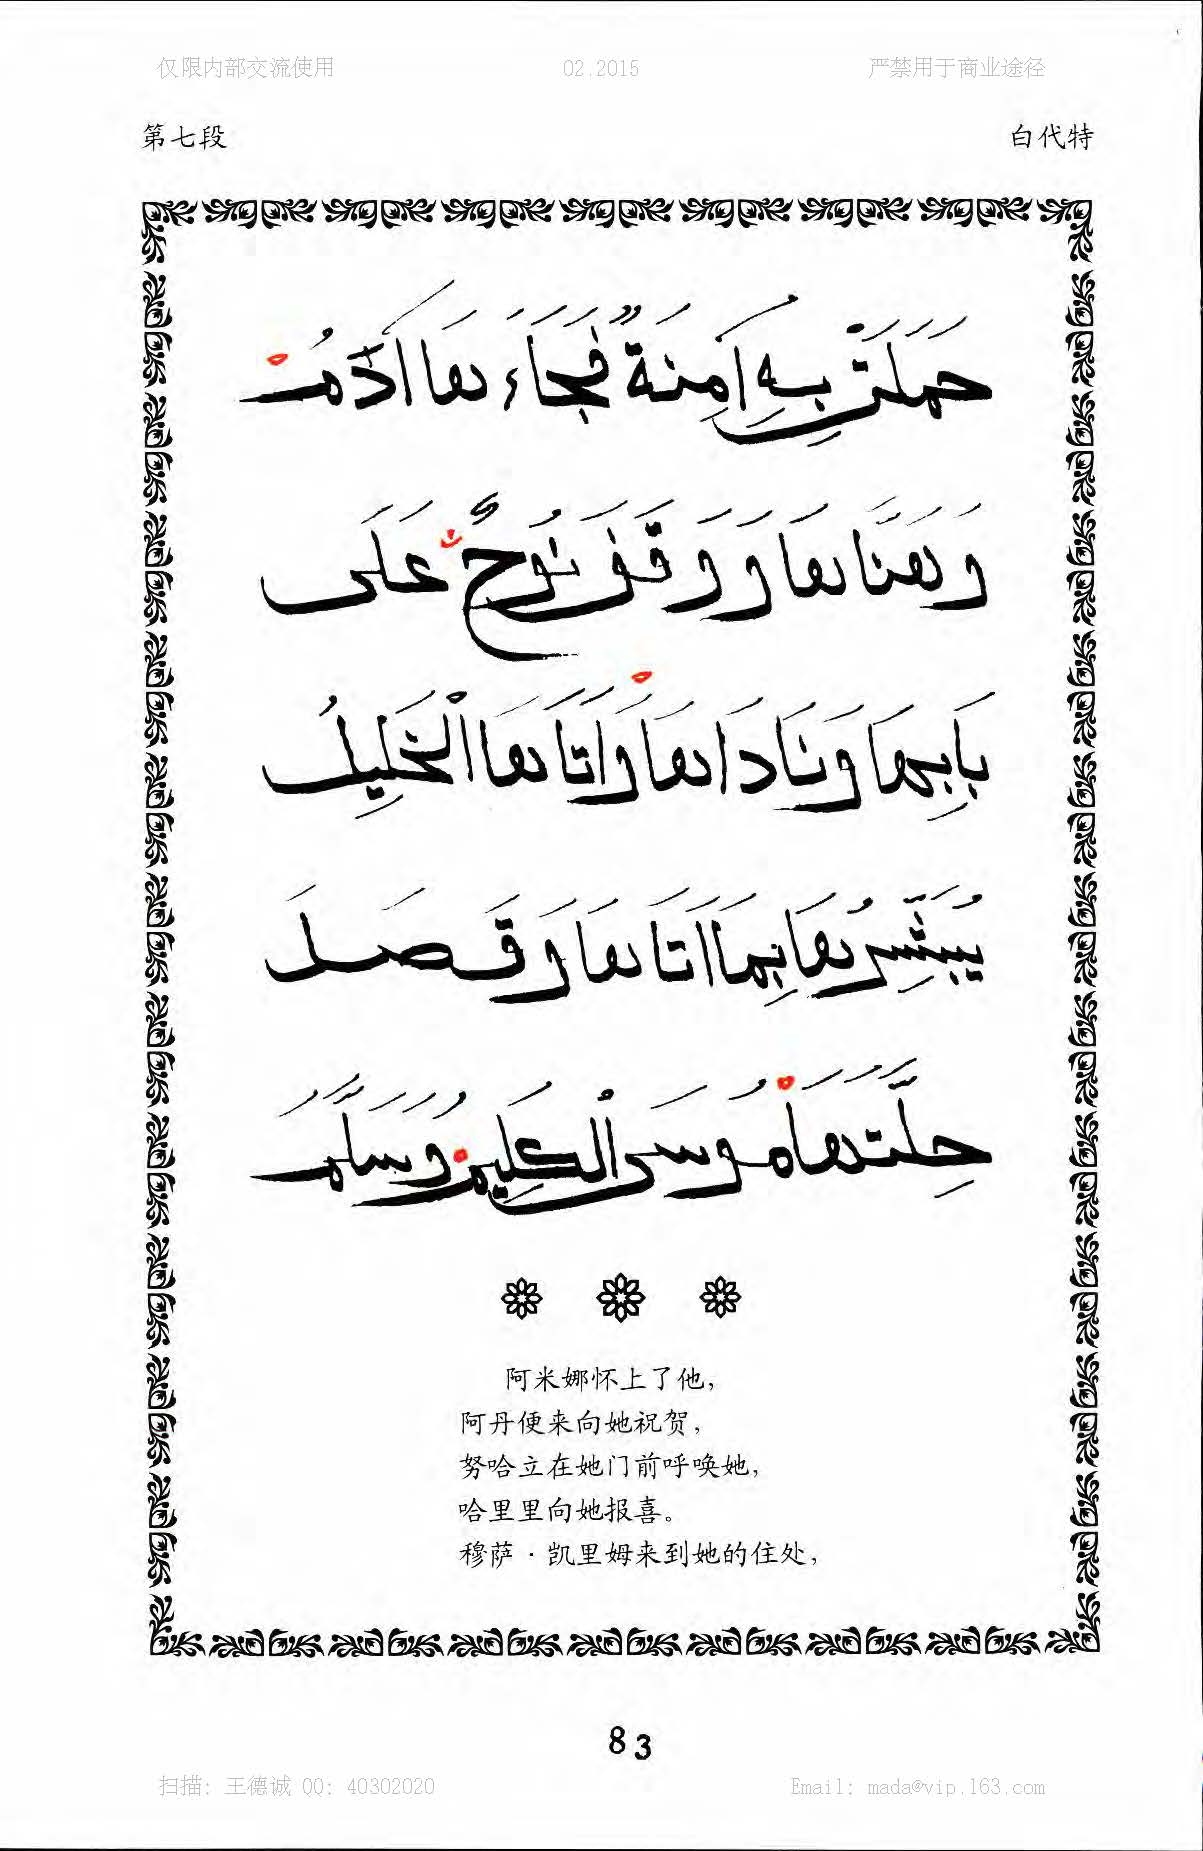 仅限内部交流使用 02.2015 严禁用于商业途径
第七段 白代特
حَمَلَتْ بِهِ آمِنَةُ فَجَاءَهَا آدَمُ
وَهَنَّاهَا وَوَقَفَ نُوحٌ عَلَى
بَابِهَا وَنَادَاهَا وَاَتَاهَا الْخَلِيلُ
يُبَشِّرُهَا بِمَا اَتَاهَا وَقَصَدَ
حِلَّتَهَا مُوسَى الْكَلِيمُ وَسَلَّمَ
阿米娜怀上了他，
阿丹便来向她祝贺，
努哈立在她门前呼唤她，
哈里里向她报喜。
穆萨·凯里姆来到她的住处，
83
扫描：王德诚 QQ：40302020 Email：mada@vip.163.com